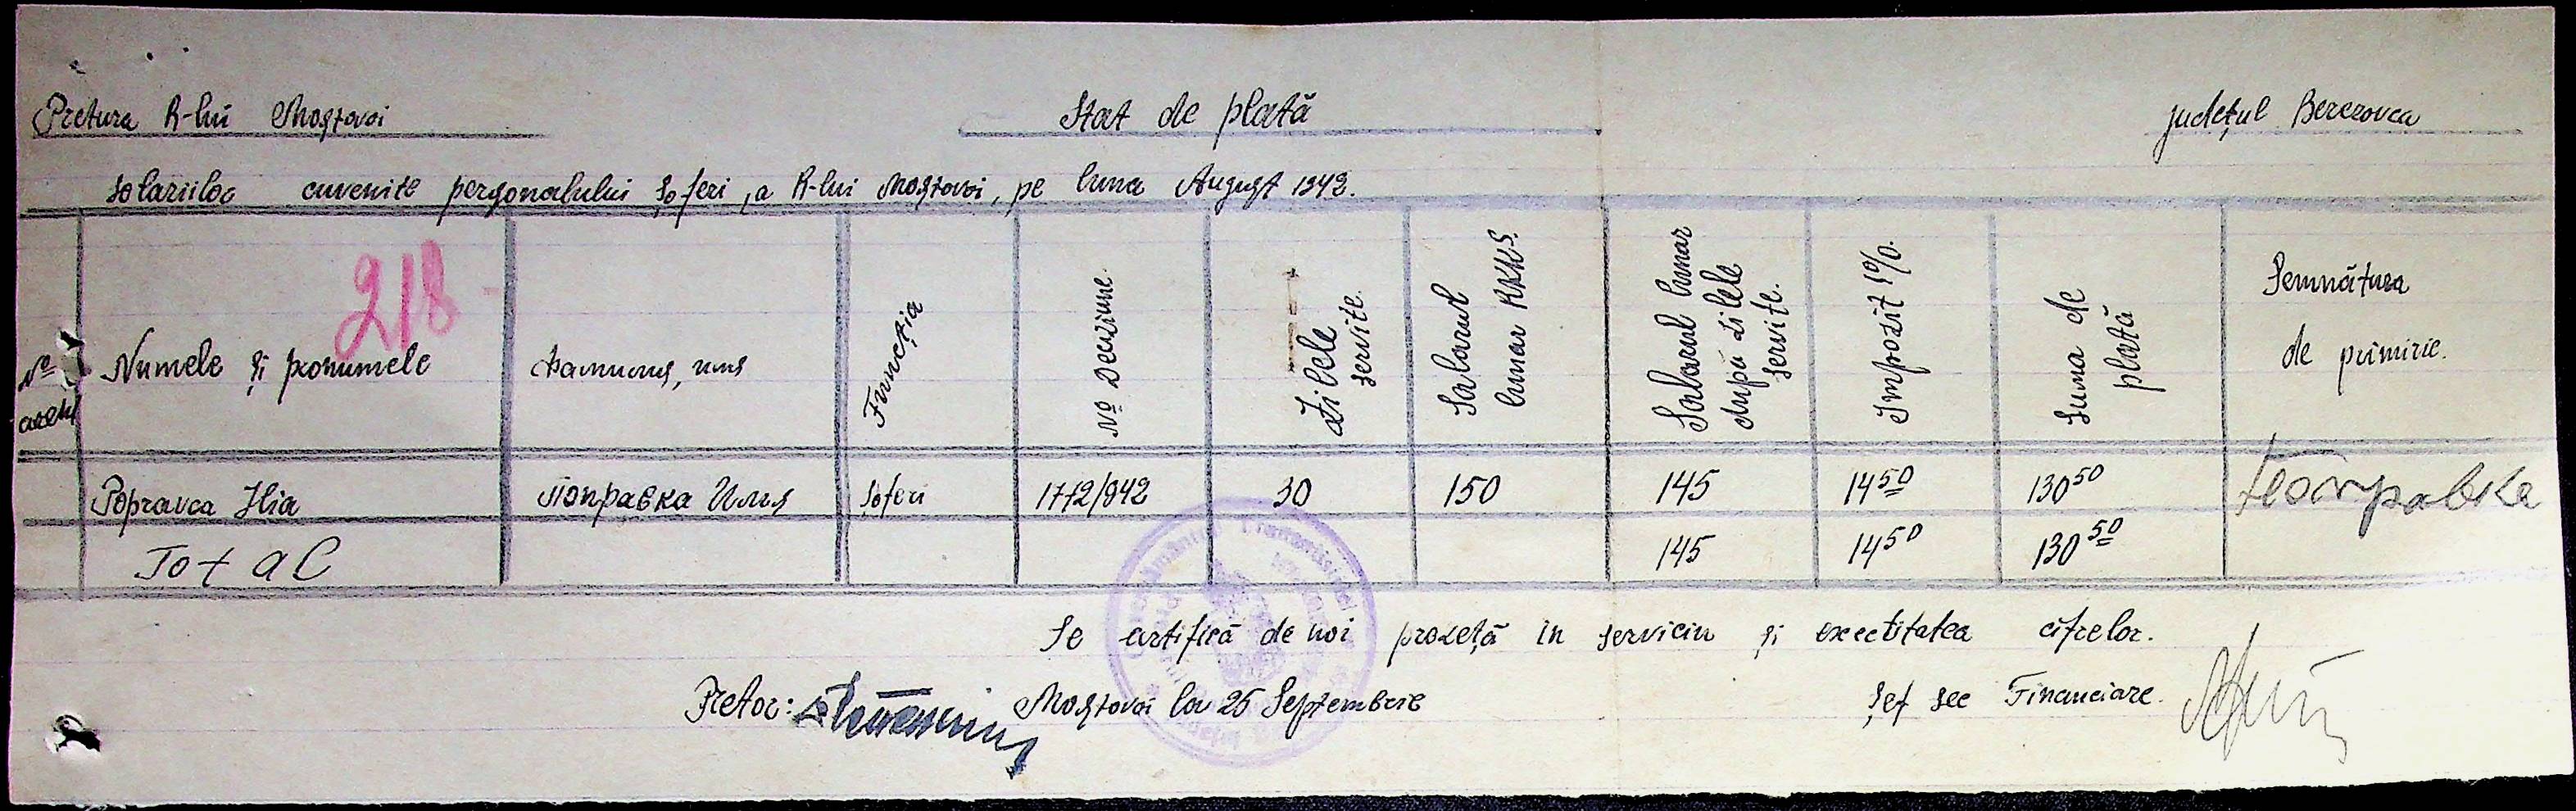 Pretura R-lui Mostovoi
Stat de plată
județul Berezovca
solariilor cuvenite personalului șoferi, a R-lui Mostovoi, pe luna August 1942.
218
Nº
Numele și pronumele
Фамилия, имя
Funcția
Nº Deciziune
Zilele servite
Salarul lunar RKKS.
Salarul lunar după zilele servite.
Impozit 10%.
Suma de plată
Semnătura de primire.
Popravca Ilia
Поправка Илия
șoferi
1772/942
30
150
145
14 50
130 50
Поправка
Total
145
14 50
130 50
Se certifică de noi prozență in serviciu și exectitatea cifrelor.
Pretor:
Mostovoi la 25 Septembrie
Șef sec Financiare.